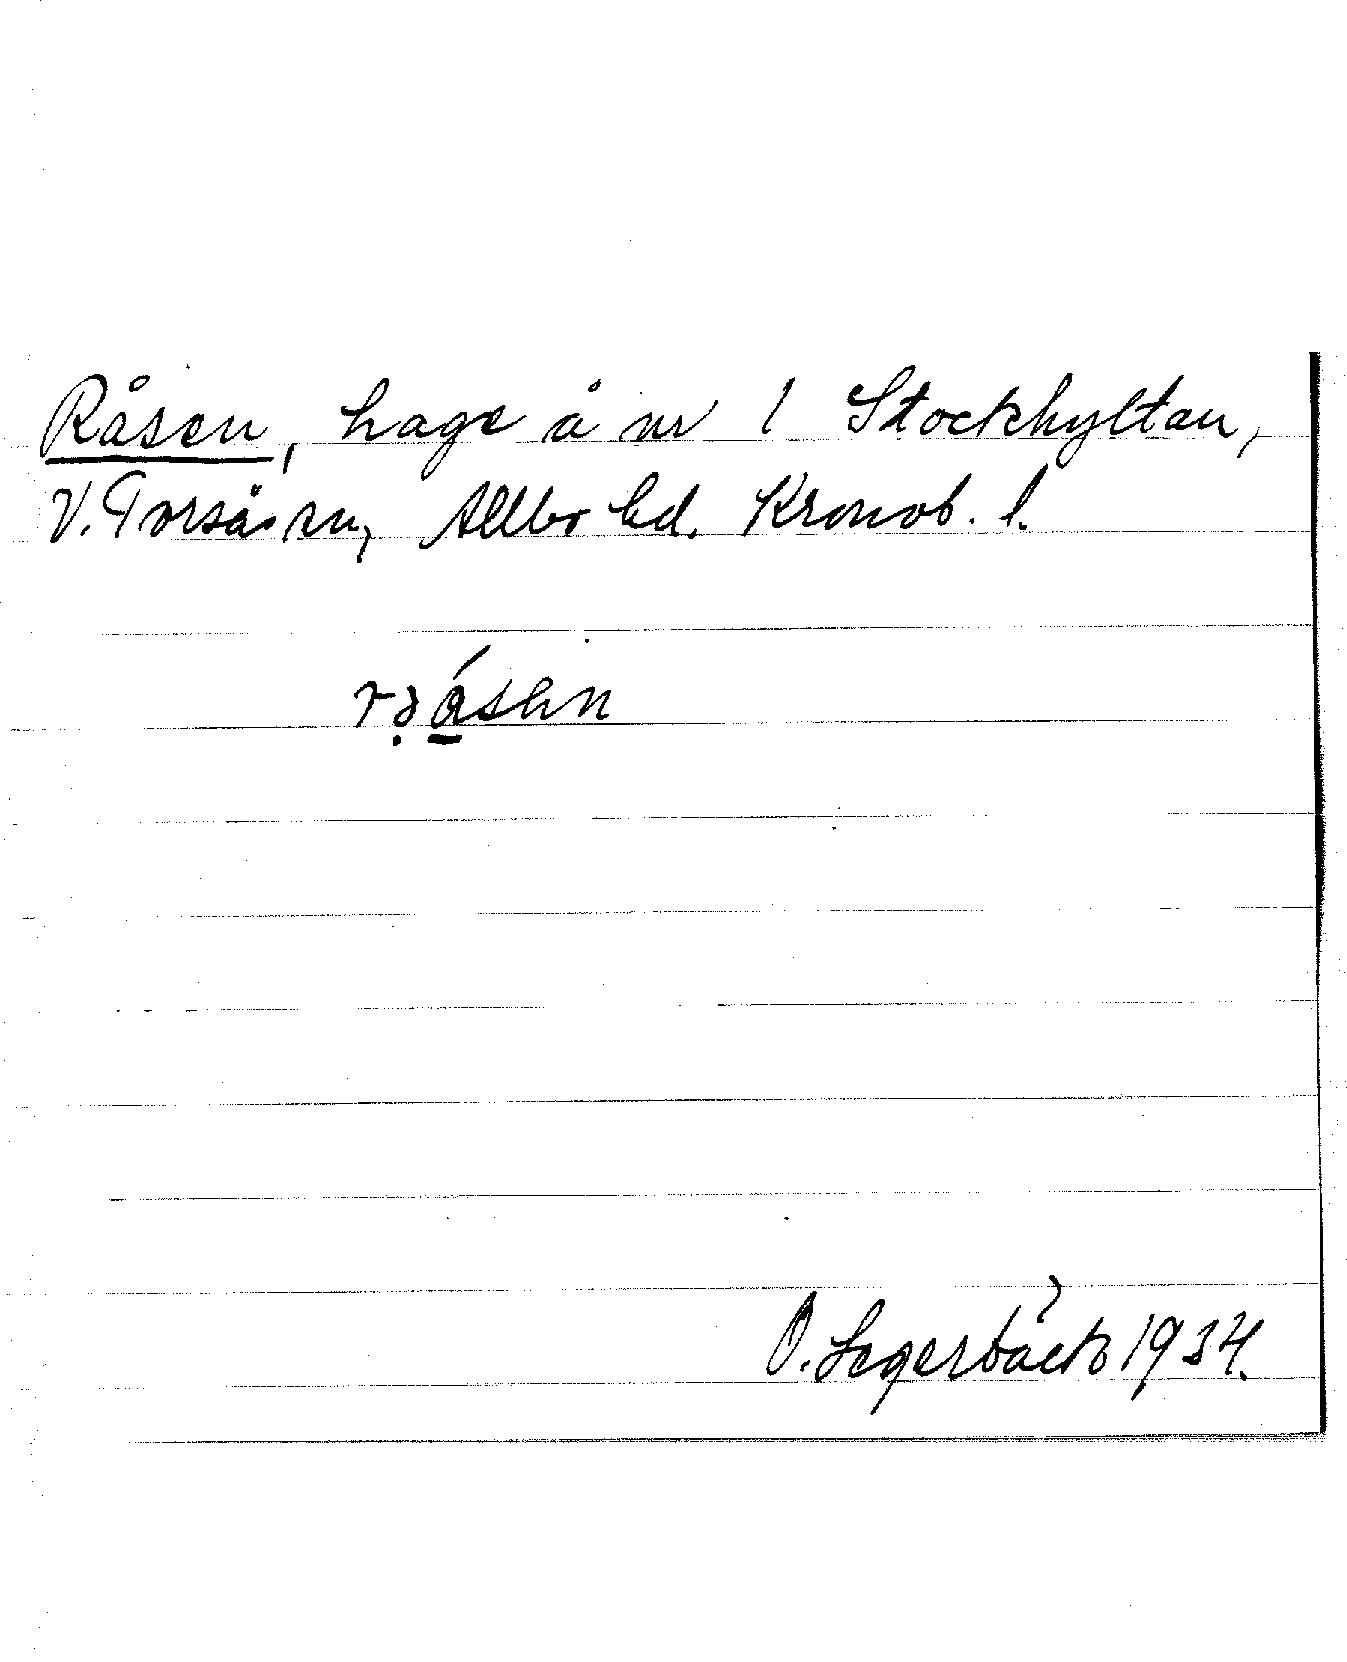 Råsen, hage å nr 1 Stockhyltan,
V. Torsås sn, Allbo hd. Kronob. l.
O. Segerbäck 1934.